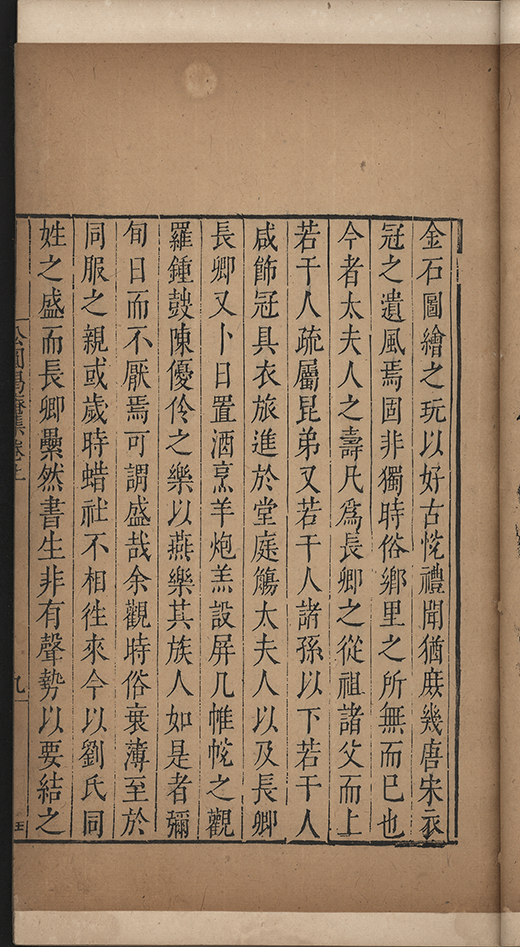 金石圖繪之玩以好古悅禮聞猶庶幾唐宋衣
冠之遺風焉固非獨時俗鄉里之所無而巳也
今者太夫人之壽凡爲長卿之從祖諸父而上
若干人疏屬昆弟又若干人諸孫以下若干人
咸飾冠具衣旅進於堂庭觴太夫人以及長卿
長卿又卜日置酒烹羊炮羔設屏几帷幌之觀
羅鍾鼓陳優伶之樂以燕樂其族人如是者彌
旬日而不厭焉可謂盛哉余觀時俗衰薄至於
同服之親或歲時蜡社不相徃來今以劉氏同
姓之盛而長卿纍然書生非有聲勢以要結之
松圓偈庵集卷上
九